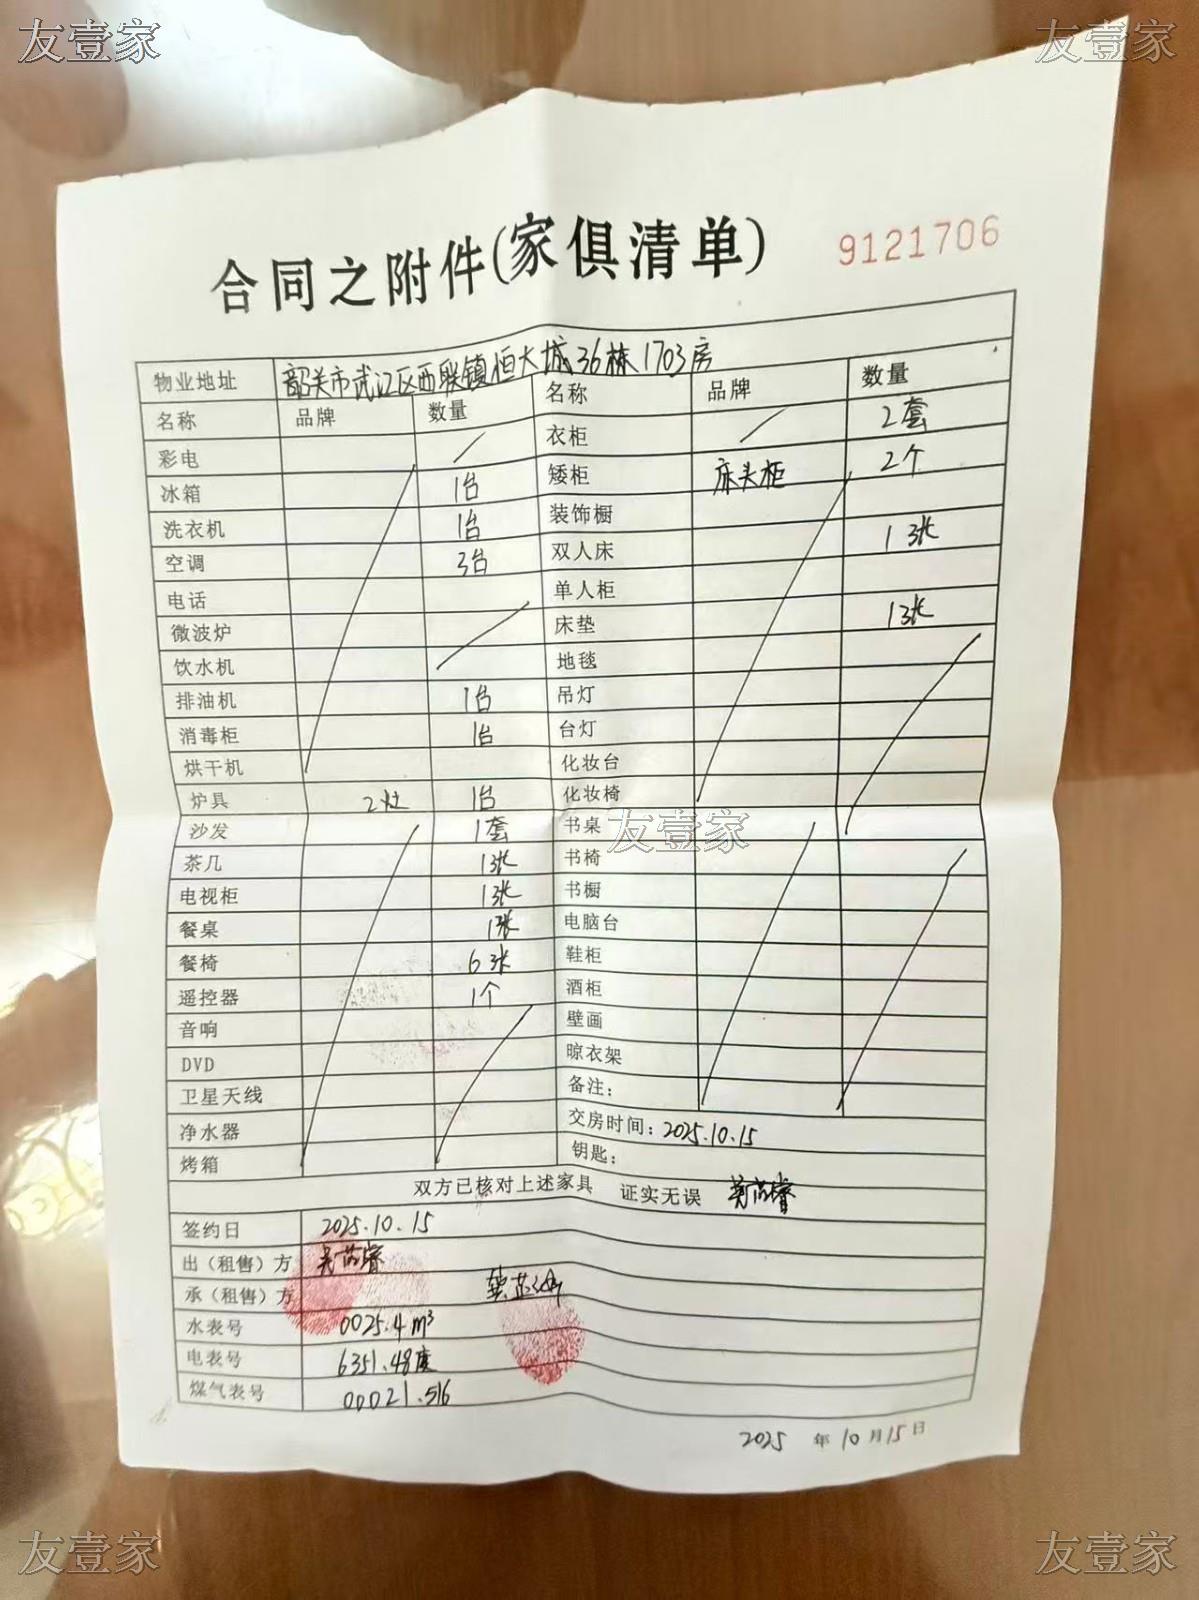 友壹家
友壹家
合同之附件(家俱清单)
9121706
物业地址 韶关市武江区西联镇恒大城36栋1703房
名称 品牌 数量 名称 品牌 数量
彩电 衣柜 2套
冰箱 1台 矮柜 床头柜 2个
洗衣机 1台 装饰橱
空调 3台 双人床 1张
电话 单人柜
微波炉 床垫 1张
饮水机 地毯
排油机 1台 吊灯
消毒柜 1台 台灯
烘干机 化妆台
炉具 2灶 1台 化妆椅
沙发 1套 书桌
友壹家
茶几 1张 书椅
电视柜 1张 书橱
餐桌 1张 电脑台
餐椅 6张 鞋柜
遥控器 1个 酒柜
音响 壁画
DVD 晾衣架
卫星天线 备注:
净水器 交房时间: 2025.10.15
烤箱 钥匙:
双方已核对上述家具 证实无误
签约日 2025.10.15
出(租售)方
承(租售)方
水表号 0025.4 m³
电表号 6351.48度
煤气表号 00021.516
2025 年 10 月 15 日
友壹家
友壹家